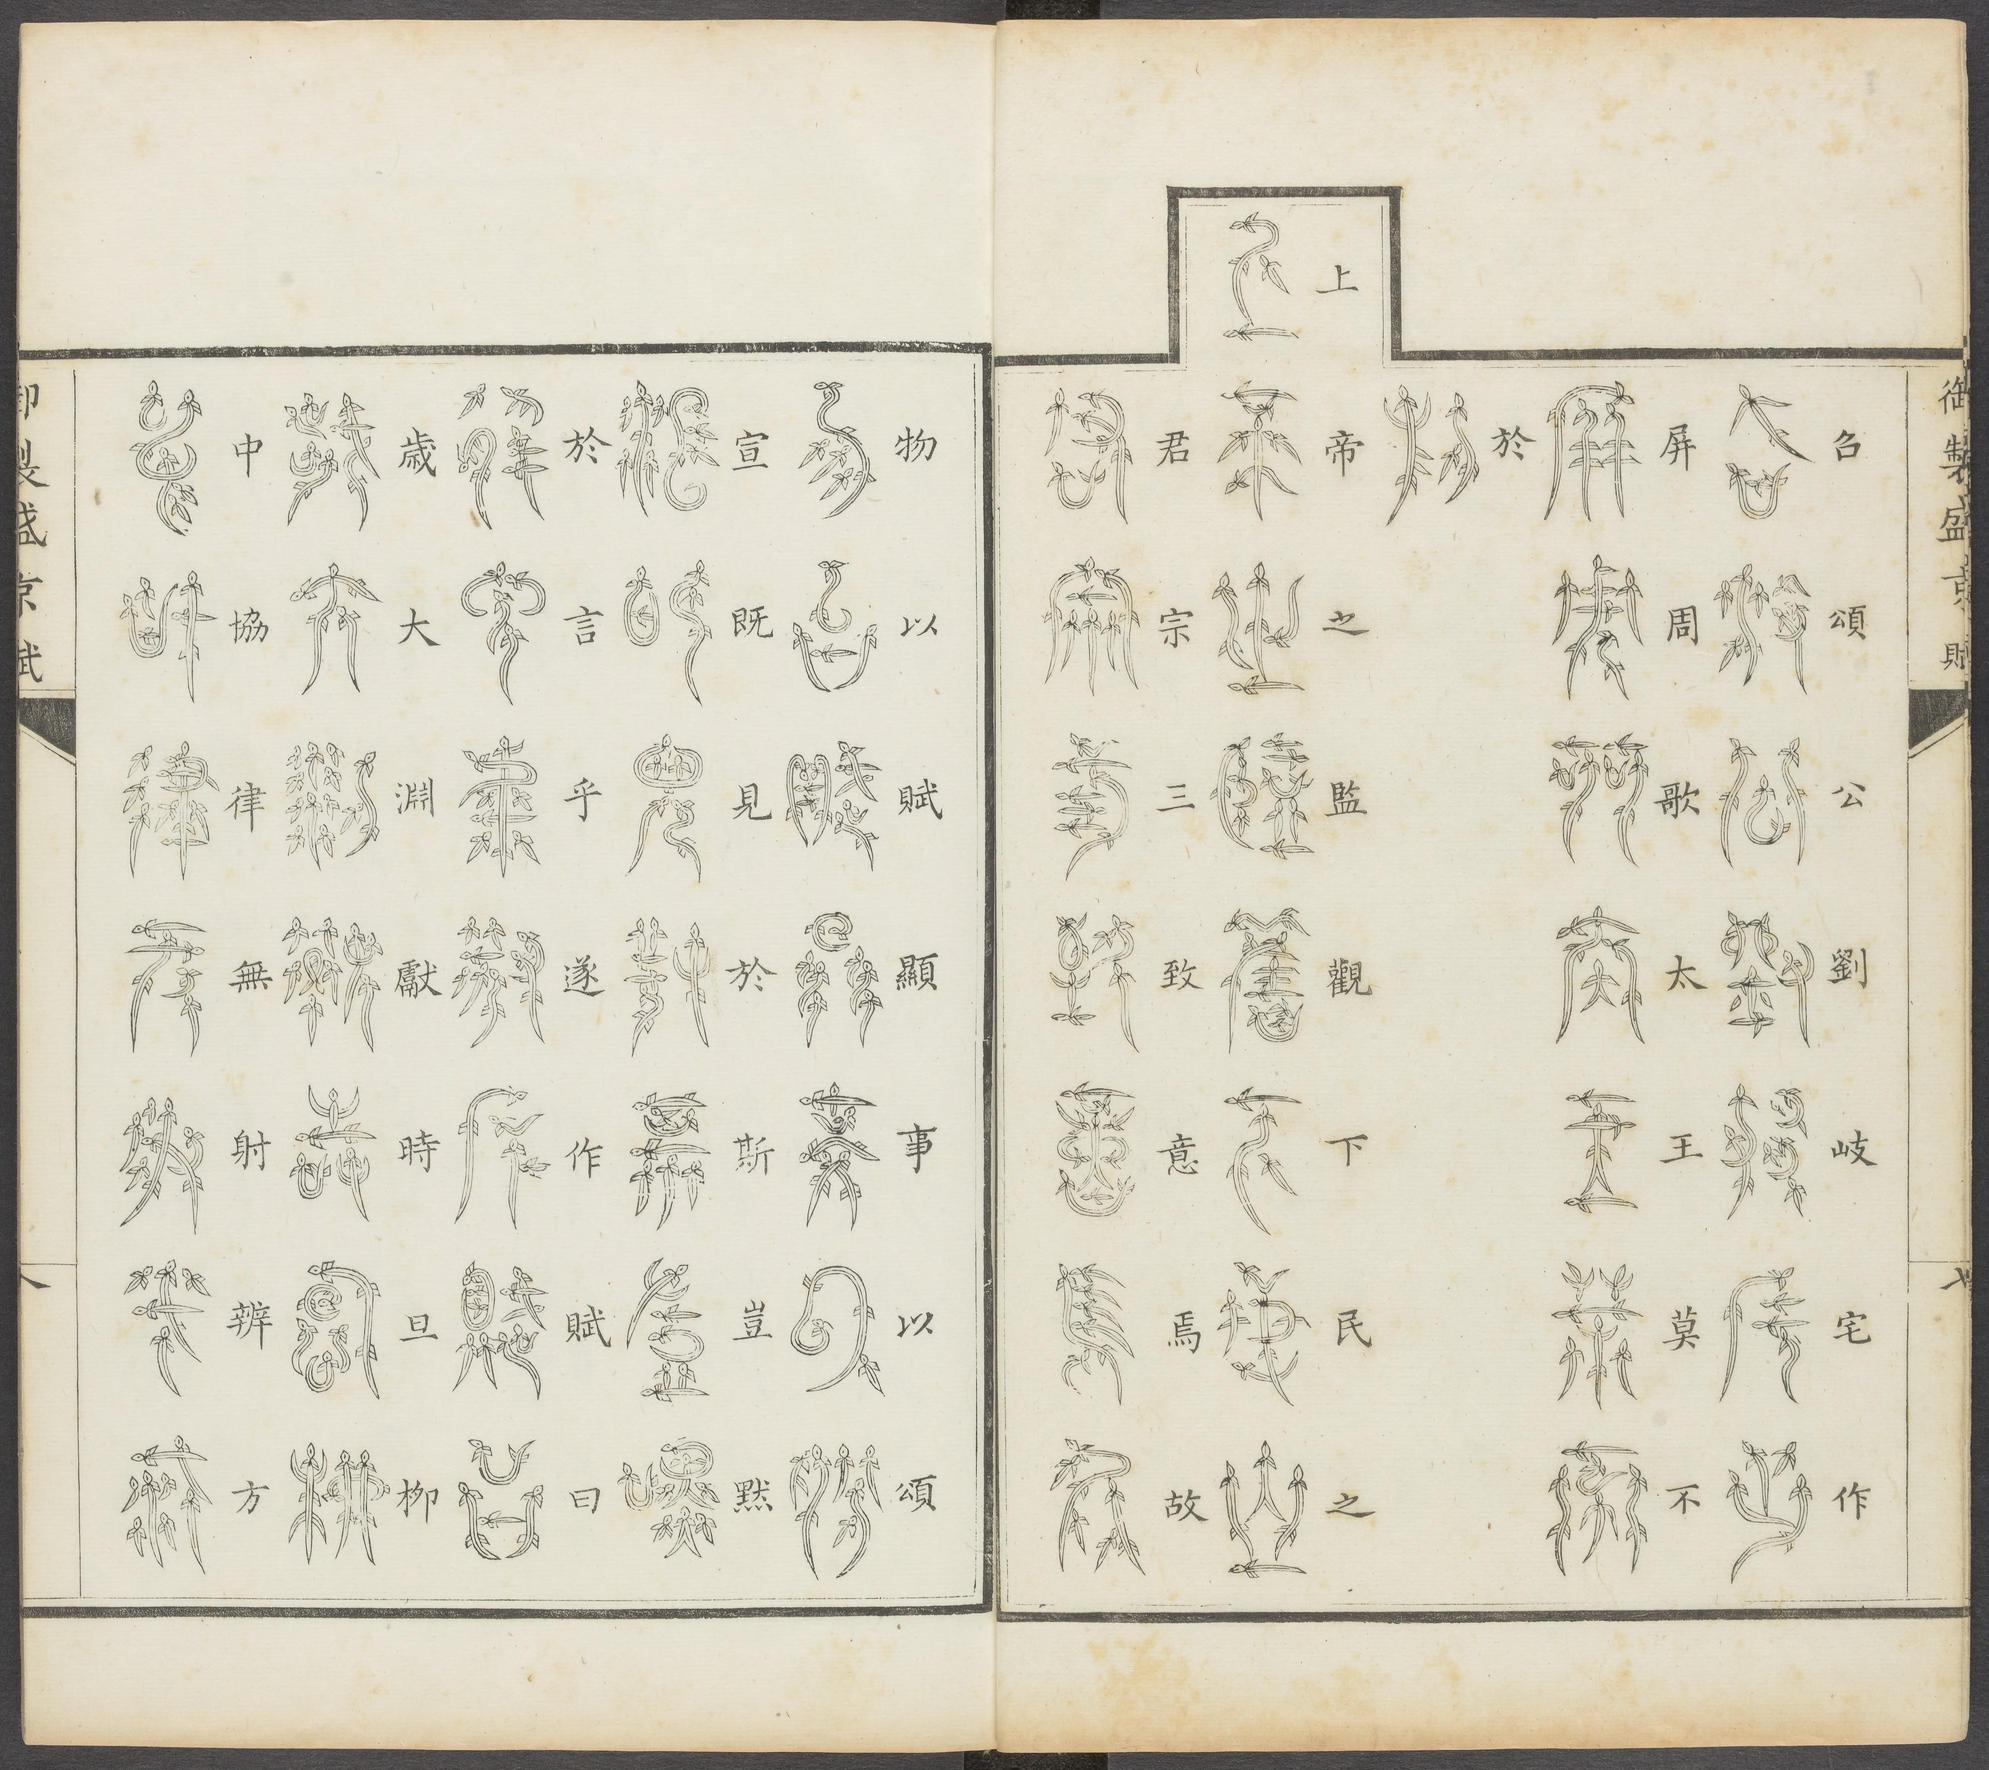 御製盛京賦
七
㕣頌公劉岐宅作
屏周歌太王莫不
於
上帝之監觀下民之
君宗三致意焉故
物以賦顯事以頌
宣既見於斯豈黙
於言乎遂作賦曰
歳大淵獻時旦柳
中協律無射辨方
御製盛京賦
八